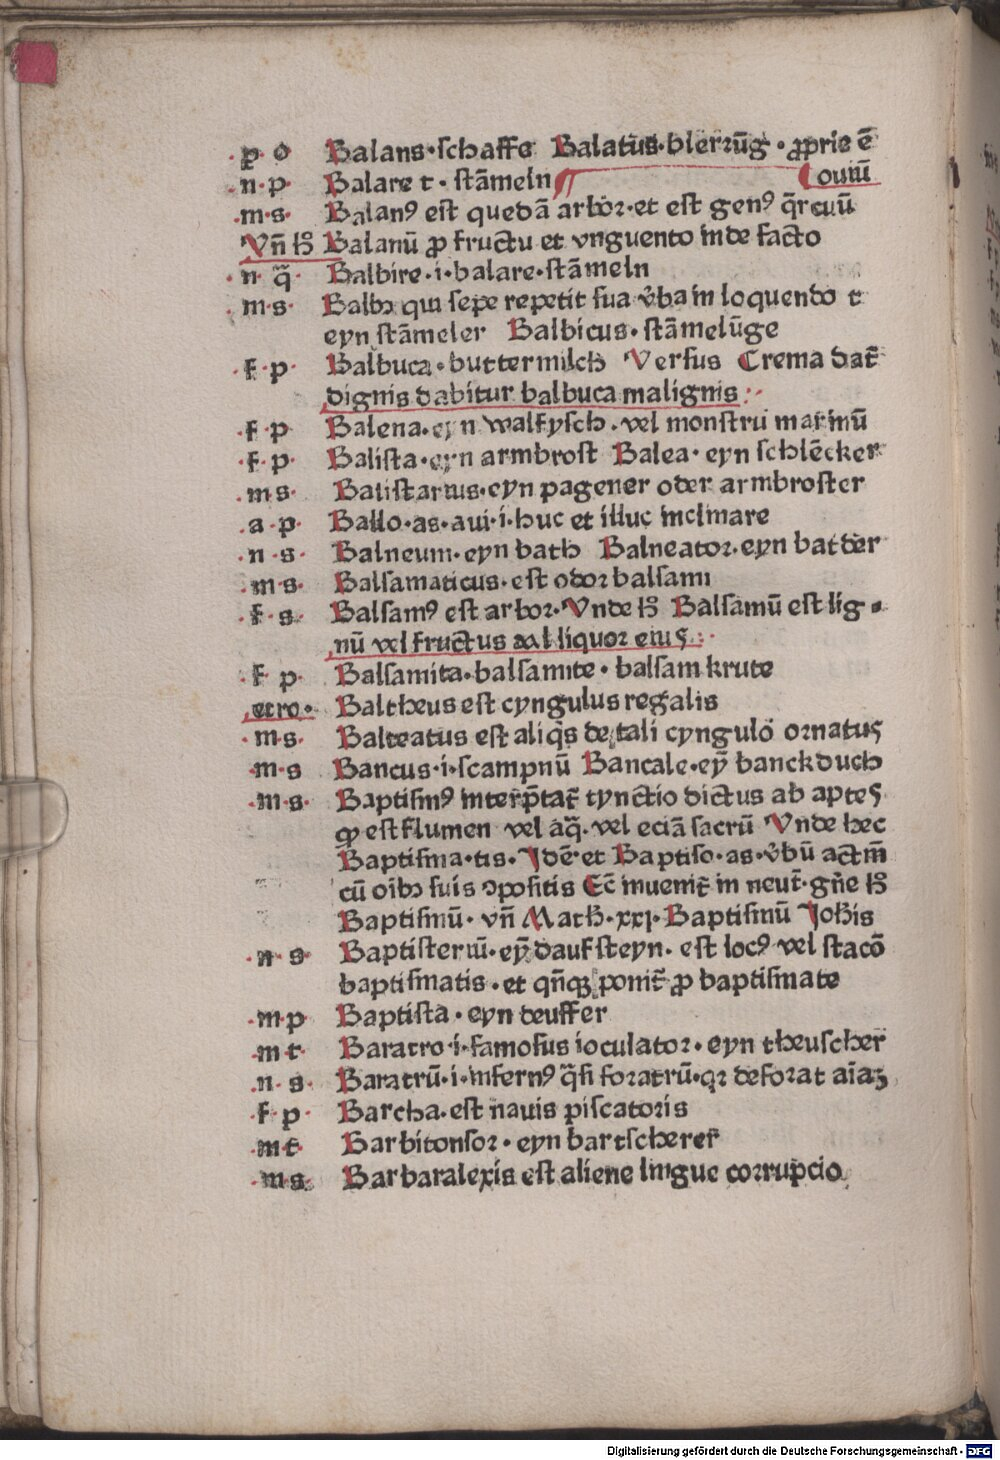 .p. o Balans·schaffe Balatus·blerrūg·ꝓprie ē
.n·p· Balare t·stāmeln ouiū
.m·s· Balanꝰ est quedā arbor·et est genꝰ q̄rcuū
Vn̄ Balanū ꝓ fructu et vnguento inde facto
·n q̄· Balbire·i·balare·stāmeln
·m·s· Balbꝰ qui sepe repetit sua v̄ba in loquendo t
eyn stāmeler Balbicus·stāmelūge
·f·p· Balbuca·buttermilch Versus Crema dat᷑
dignis dabitur balbuca malignis:·
·f·p Balena·eyn walfysch·vel monstrū marinū
·f·p· Balista·eyn armbrost Balea·eyn schlēcker
·m s· Balistarius·eyn pagener oder armbroster
.a·p· Ballo·as·aui·i·huc et illuc inclinare
·n·s· Balneum·eyn bath Balneator·eyn batder
·m·s· Balsamaticus·est odor balsami
·f·s· Balsamꝰ est arbor·Vnde Balsamū est lig
nū vel fructus liquor eius·
·f p· Balsamita·balsamite·balsam krute
etro· Baltheus est cyngulus regalis
·m·s· Balteatus est aliq̄s de tali cyngulo ornatus
·m·s Bancus·i·scampnū Bancale·eȳ banckduch
·m·s· Baptismꝰ interp̄tat᷑ tynctio dictus ab aptes
ꝙ est flumen vel aq̄·vel eciā sacrū Vnde hec
Baptisma·tis·Jdē et Baptiso·as·v̄bū actm̄
cū oībꝰ suis ꝯpositis Ec̄ inuenit᷑ in neut᷑·gn̄e
Baptismū·vn̄ Math·xxj·Baptismū Johis
·n·s· Baptisteriū·eȳ daufsteyn·est locꝰ vel stacō
baptismatis·et qn̄qꝫ ponit᷑ ꝓ baptismate
·m p Baptista·eyn deuffer
·m t Baratro·i·famosus ioculator·eyn theuscher
·n·s· Baratrū·i·infernꝰ q̄si foratrū·qꝛ deforat aīaꝫ
·f p· Barcha·est nauis piscatoris
·m t· Barbitonsor·eyn bartscherer
·m s· Barbaralexis est aliene lingue corrupcio
Digitalisierung gefördert durch die Deutsche Forschungsgemeinschaft - DFG